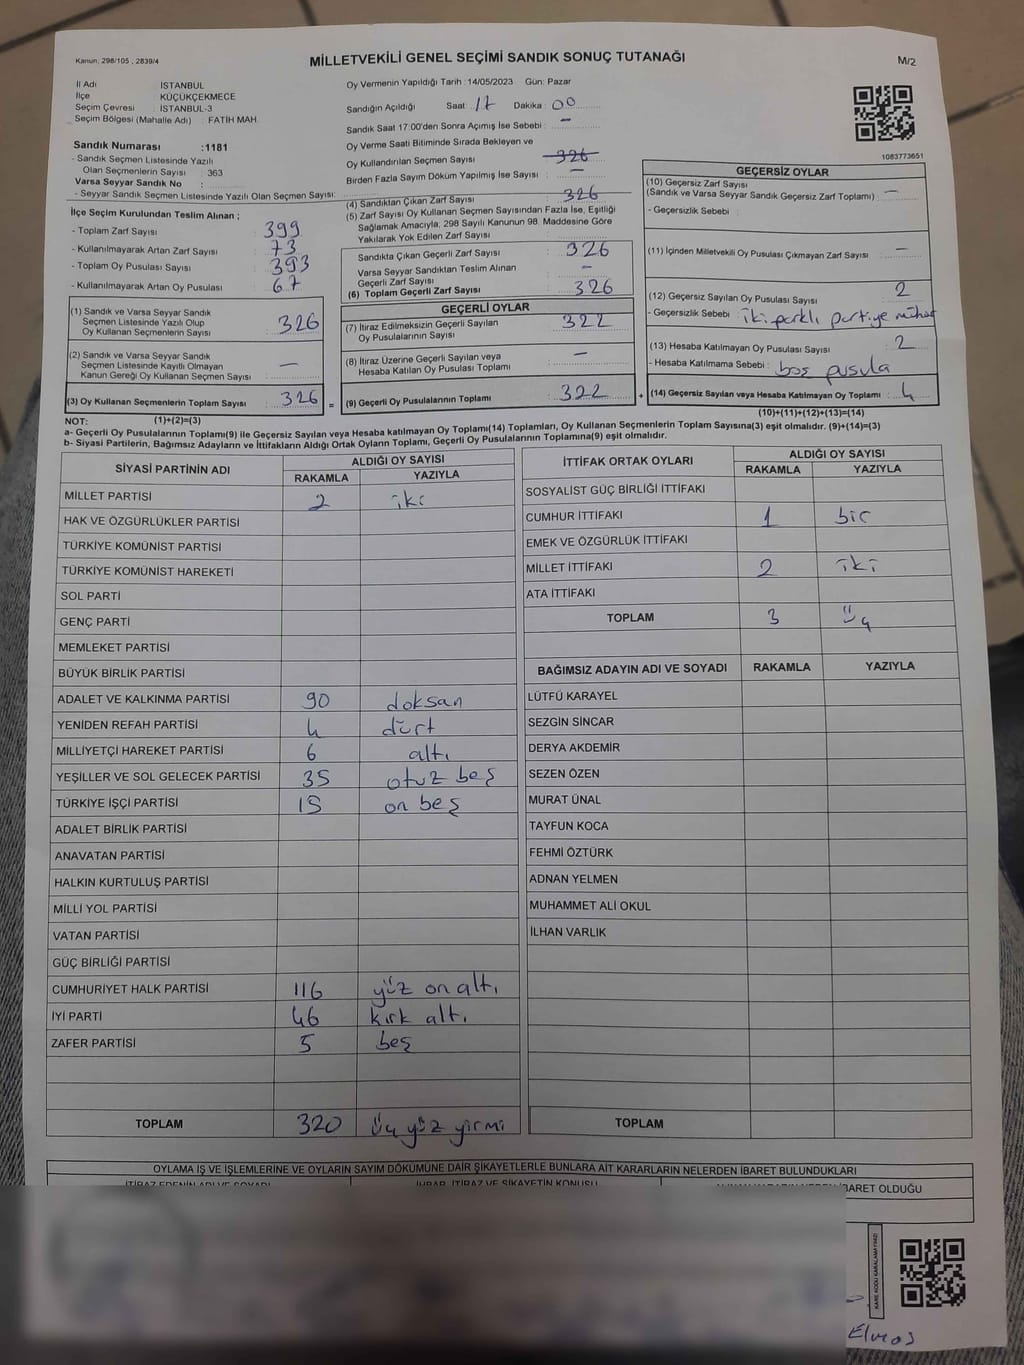 Kanun; 298/105 , 2839/4
MİLLETVEKİLİ GENEL SEÇİMİ SANDIK SONUÇ TUTANAĞI
M/2
İl Adı : İSTANBUL
İlçe : KÜÇÜKÇEKMECE
Seçim Çevresi : İSTANBUL-3
Seçim Bölgesi (Mahalle Adı) : FATİH MAH.
Sandık Numarası :1181
- Sandık Seçmen Listesinde Yazılı
Olan Seçmenlerin Sayısı : 363
Varsa Seyyar Sandık No :
- Seyyar Sandık Seçmen Listesinde Yazılı Olan Seçmen Sayısı:
Oy Vermenin Yapıldığı Tarih : 14/05/2023 Gün: Pazar
Sandığın Açıldığı Saat : 17 Dakika : 00
Sandık Saat 17:00'den Sonra Açımış İse Sebebi : —
Oy Verme Saati Bitiminde Sırada Bekleyen ve
Oy Kullandırılan Seçmen Sayısı : 326
Birden Fazla Sayım Döküm Yapılmış İse Sayısı : —
1083773651
İlçe Seçim Kurulundan Teslim Alınan ;
- Toplam Zarf Sayısı : 399
- Kullanılmayarak Artan Zarf Sayısı : 73
- Toplam Oy Pusulası Sayısı : 393
- Kullanılmayarak Artan Oy Pusulası : 67
(1) Sandık ve Varsa Seyyar Sandık
Seçmen Listesinde Yazılı Olup
Oy Kullanan Seçmenlerin Sayısı : 326
(2) Sandık ve Varsa Seyyar Sandık
Seçmen Listesinde Kayıtlı Olmayan
Kanun Gereği Oy Kullanan Seçmen Sayısı : —
(3) Oy Kullanan Seçmenlerin Toplam Sayısı : 326 =
(1)+(2)=(3)
(4) Sandıktan Çıkan Zarf Sayısı : 326
(5) Zarf Sayısı Oy Kullanan Seçmen Sayısından Fazla İse, Eşitliği
Sağlamak Amacıyla, 298 Sayılı Kanunun 98. Maddesine Göre
Yakılarak Yok Edilen Zarf Sayısı :
Sandıkta Çıkan Geçerli Zarf Sayısı : 326
Varsa Seyyar Sandıktan Teslim Alınan
Geçerli Zarf Sayısı : —
(6) Toplam Geçerli Zarf Sayısı : 326
GEÇERLİ OYLAR
(7) İtiraz Edilmeksizin Geçerli Sayılan
Oy Pusulasının Sayısı : 322
(8) İtiraz Üzerine Geçerli Sayılan veya
Hesaba Katılan Oy Pusulası Toplamı : —
(9) Geçerli Oy Pusulalarının Toplamı : 322 +
GEÇERSİZ OYLAR
(10) Geçersiz Zarf Sayısı
(Sandık ve Varsa Seyyar Sandık Geçersiz Zarf Toplamı) : —
- Geçersizlik Sebebi :
(11) İçinden Milletvekili Oy Pusulası Çıkmayan Zarf Sayısı : —
(12) Geçersiz Sayılan Oy Pusulası Sayısı : 2
- Geçersizlik Sebebi : iki farklı partiye mühür
(13) Hesaba Katılmayan Oy Pusulası Sayısı : 2
- Hesaba Katılmama Sebebi : boş pusula
(14) Geçersiz Sayılan veya Hesaba Katılmayan Oy Toplamı : 4
(10)+(11)+(12)+(13)=(14)
NOT:
a- Geçerli Oy Pusulalarının Toplamı(9) ile Geçersiz Sayılan veya Hesaba katılmayan Oy Toplamı(14) Toplamları, Oy Kullanan Seçmenlerin Toplam Sayısına(3) eşit olmalıdır. (9)+(14)=(3)
b- Siyasi Partilerin, Bağımsız Adayların ve İttifakların Aldığı Ortak Oyların Toplamı, Geçerli Oy Pusulalarının Toplamına(9) eşit olmalıdır.
SİYASİ PARTİNİN ADI ALDIĞI OY SAYISI
RAKAMLA YAZIYLA
MİLLET PARTİSİ 2 iki
HAK VE ÖZGÜRLÜKLER PARTİSİ
TÜRKİYE KOMÜNİST PARTİSİ
TÜRKİYE KOMÜNİST HAREKETİ
SOL PARTİ
GENÇ PARTİ
MEMLEKET PARTİSİ
BÜYÜK BİRLİK PARTİSİ
ADALET VE KALKINMA PARTİSİ 90 doksan
YENİDEN REFAH PARTİSİ 4 dört
MİLLİYETÇİ HAREKET PARTİSİ 6 altı
YEŞİLLER VE SOL GELECEK PARTİSİ 35 otuz beş
TÜRKİYE İŞÇİ PARTİSİ 15 on beş
ADALET BİRLİK PARTİSİ
ANAVATAN PARTİSİ
HALKIN KURTULUŞ PARTİSİ
MİLLİ YOL PARTİSİ
VATAN PARTİSİ
GÜÇ BİRLİĞİ PARTİSİ
CUMHURİYET HALK PARTİSİ 116 yüz on altı
İYİ PARTİ 46 kırk altı
ZAFER PARTİSİ 5 beş
TOPLAM 320 üç yüz yirmi
İTTİFAK ORTAK OYLARI ALDIĞI OY SAYISI
RAKAMLA YAZIYLA
SOSYALİST GÜÇ BİRLİĞİ İTTİFAKI
CUMHUR İTTİFAKI 1 bir
EMEK VE ÖZGÜRLÜK İTTİFAKI
MİLLET İTTİFAKI 2 iki
ATA İTTİFAKI
TOPLAM 3 üç
BAĞIMSIZ ADAYIN ADI VE SOYADI RAKAMLA YAZIYLA
LÜTFÜ KARAYEL
SEZGİN SİNCAR
DERYA AKDEMİR
SEZEN ÖZEN
MURAT ÜNAL
TAYFUN KOCA
FEHMİ ÖZTÜRK
ADNAN YELMEN
MUHAMMET ALİ OKUL
İLHAN VARLIK
TOPLAM
OYLAMA İŞ VE İŞLEMLERİNE VE OYLARIN SAYIM DÖKÜMÜNE DAİR ŞİKAYETLERLE BUNLARA AİT KARARLARIN NELERDEN İBARET BULUNDUKLARI
İTİRAZ EDENİN ADI VE SOYADI İHBAR, İTİRAZ VE ŞİKAYETİN KONUSU İBARET OLDUĞU
KARE KODU KARALAMAYINIZ!
Elmas